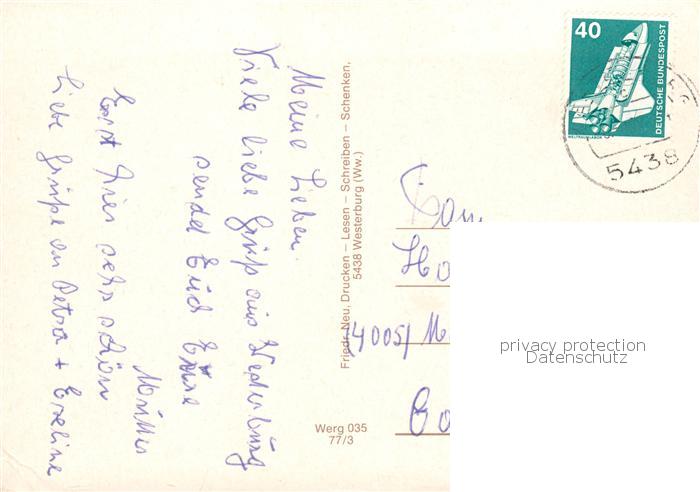 Meine Lieben.
Viele liebe Grüße aus Westerburg
sendet Euch Eure
Mutter
Es ist hier sehr schön
Liebe Grüße an Petra + Eveline
Friedr. Neu, Drucken – Lesen – Schreiben – Schenken,
5438 Westerburg (Ww.)
Werg 035
77/3
40
DEUTSCHE BUNDESPOST
WELTRAUMLABOR
5438
Fam
Ho
4005 / M
privacy protection
Datenschutz